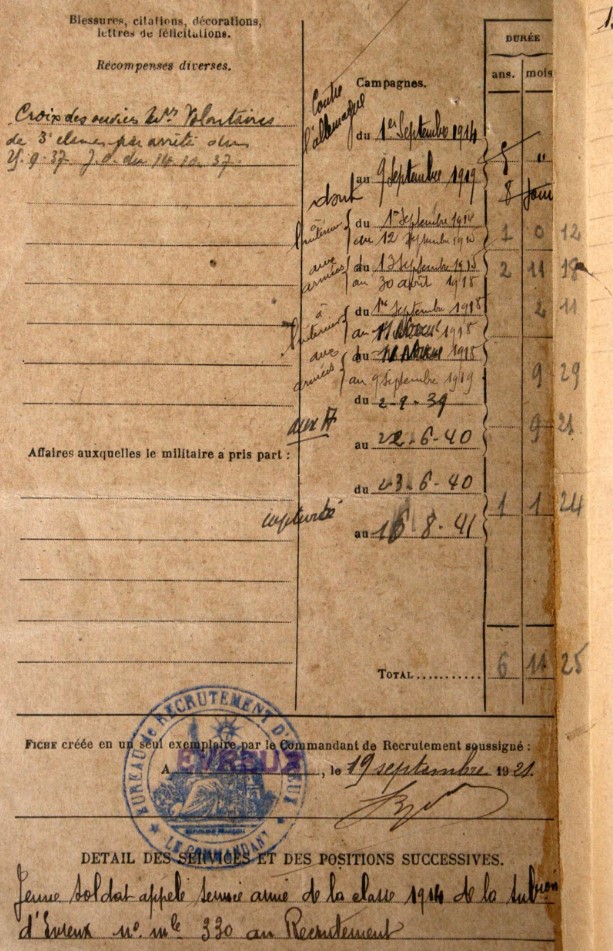 Blessures, citations, décorations,
lettres de félicitations.
Récompenses diverses.
Croix des Volontaires
de 3e par arrêté du
9.37. J.O. du 14.10.37.
Campagnes.
DURÉE
ans. mois
Contre
l'allemagne
du 1er Septembre 1914
au 9 Septembre 1919
5 "
dont
8 jours
à l'intérieur
du 1er Septembre 1914
au 12 Septembre
1 0 12
aux armées
du 13 Septembre 1915
au 30 avril 1918
2 11 18
à l'intérieur
du 1er Septembre 1918
au 11 1918
2 11
aux armées
du 11 1918
au 9 Septembre 1919
9 29
aux A
du 2-9-39
au 22-6-40
9 21
captivité
du 23-6-40
au 16-8-41
1 1 24
Affaires auxquelles le militaire a pris part :
TOTAL........... 6 11 25
FICHE créée en un seul exemplaire par le Commandant de Recrutement soussigné :
A EVREUX, le 19 septembre 1921.
BUREAU de RECRUTEMENT D'EVREUX
LE COMMANDANT
DETAIL DES SERVICES ET DES POSITIONS SUCCESSIVES.
Jeune Soldat appelé service armé de la classe 1914 de la subion
d'Evreux no. mle 330 au Recrutement